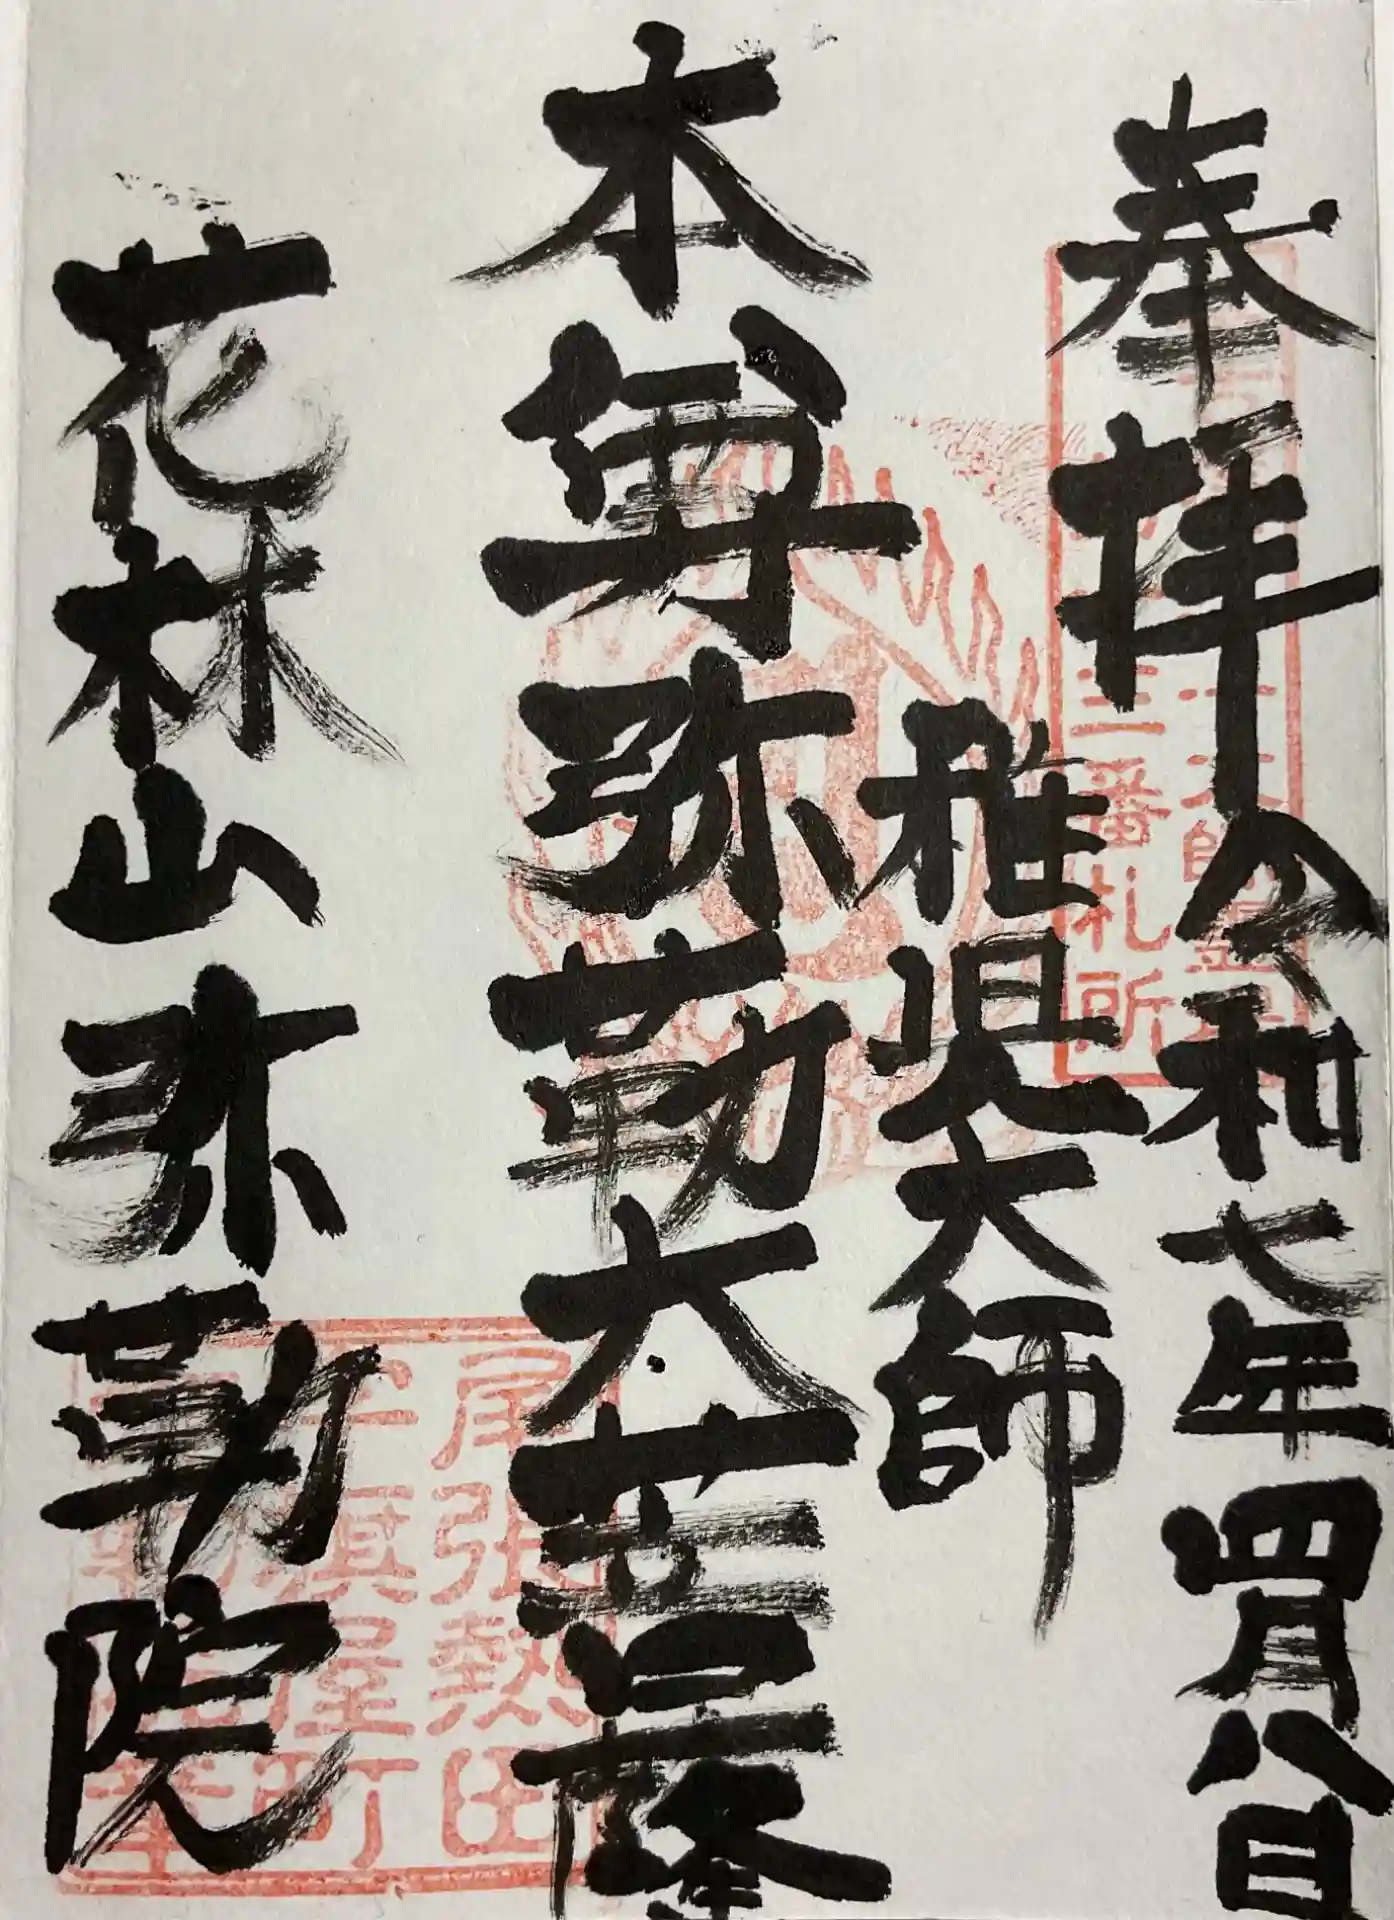 奉拝 令和七年四月八日
稚児大師
本尊弥勒大菩薩
花林山弥勒院
大師霊場
三番札所
尾張熱田
屋町